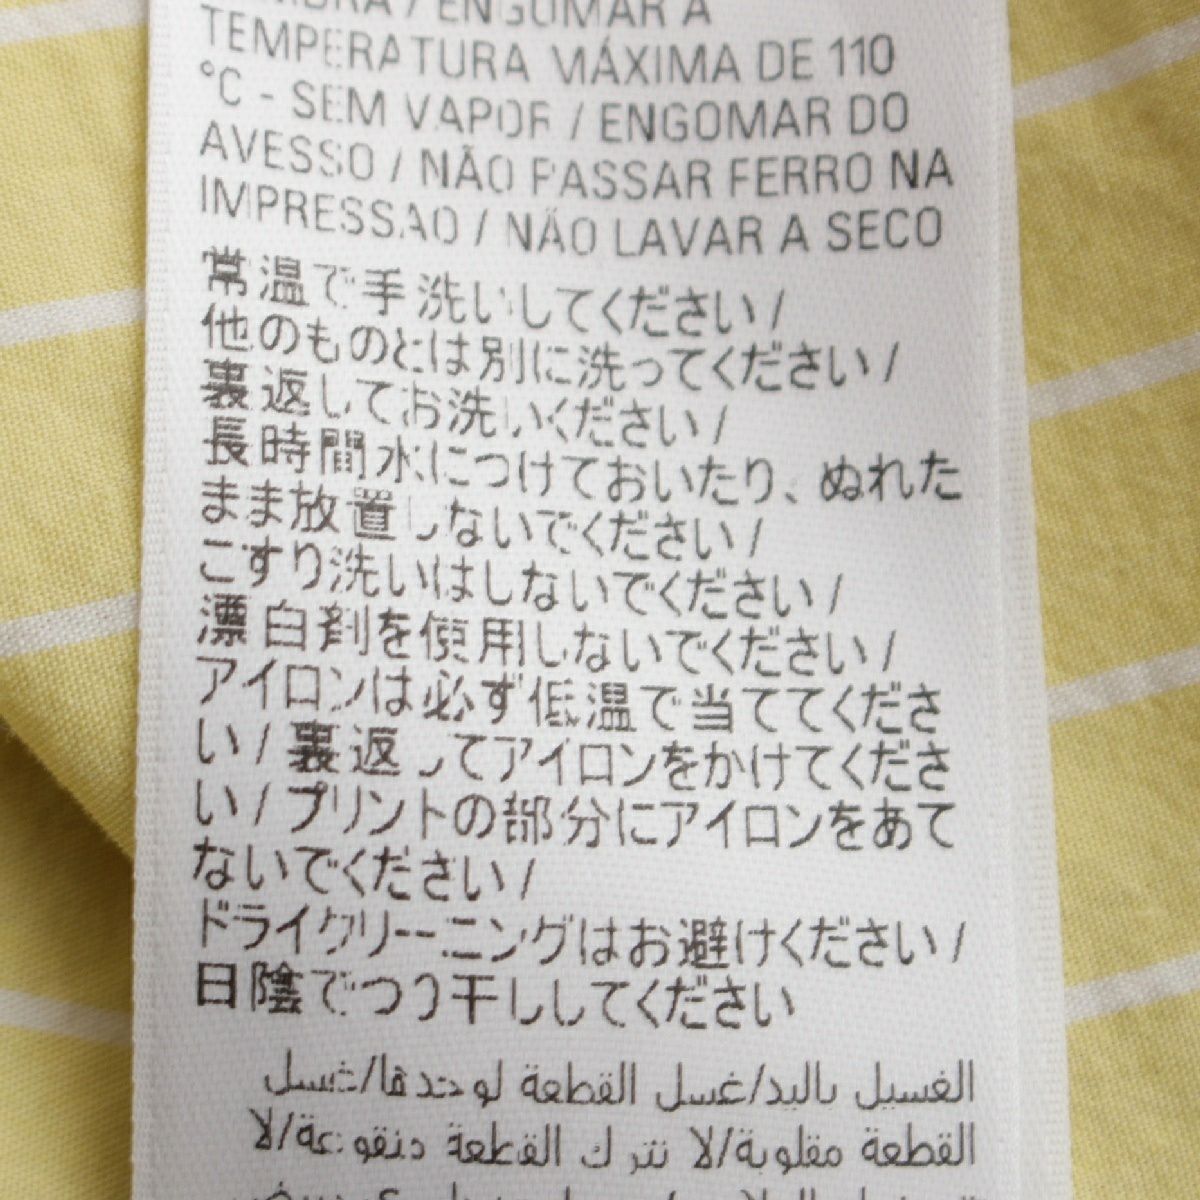 ENGOMAR A
TEMPERATURA MÁXIMA DE 110
°C - SEM VAPOR / ENGOMAR DO
AVESSO / NÃO PASSAR FERRO NA
IMPRESSAO / NÃO LAVAR A SECO
常温で手洗いしてください /
他のものとは別に洗ってください /
裏返してお洗いください /
長時間水につけておいたり、ぬれた
まま放置しないでください /
こすり洗いはしないでください /
漂白剤を使用しないでください /
アイロンは必ず低温で当ててくださ
い / 裏返してアイロンをかけてくださ
い / プリントの部分にアイロンをあて
ないでください /
ドライクリーニングはお避けください /
日陰でつり干ししてください
الغسيل باليد/غسل القطعة لوحدها/غسل
القطعة مقلوبة/لا تترك القطعة منقوعة/لا